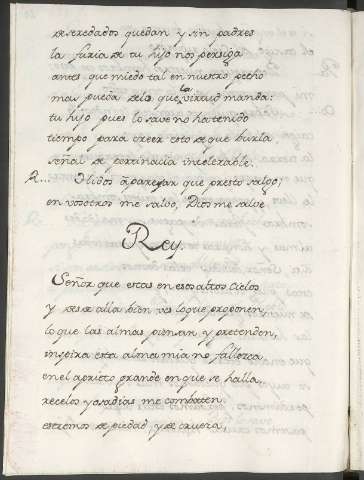 deseredados quedan y sin padres
la furia de tu hijo nos persiga
antes que miedo tal en nuestro pecho
mas pueda de lo que la virtud manda:
tu hijo pues lo save no ha tenido
tiempo para creer esto de que burla,
señal de pertinacia intolerable.
R... Hidos a parejar que presto salgo;
en vosotros me salvo, Dios me salve
Rey.
Señor que estas en esos altos cielos
y desde alla bien ves lo que proponen,
lo que las almas piensan y pretenden,
inspira esta alma mia no fallezca
en el aprieto grande en que se halla,
recelos y osadias me combaten
estremos de piedad, y de crueza,